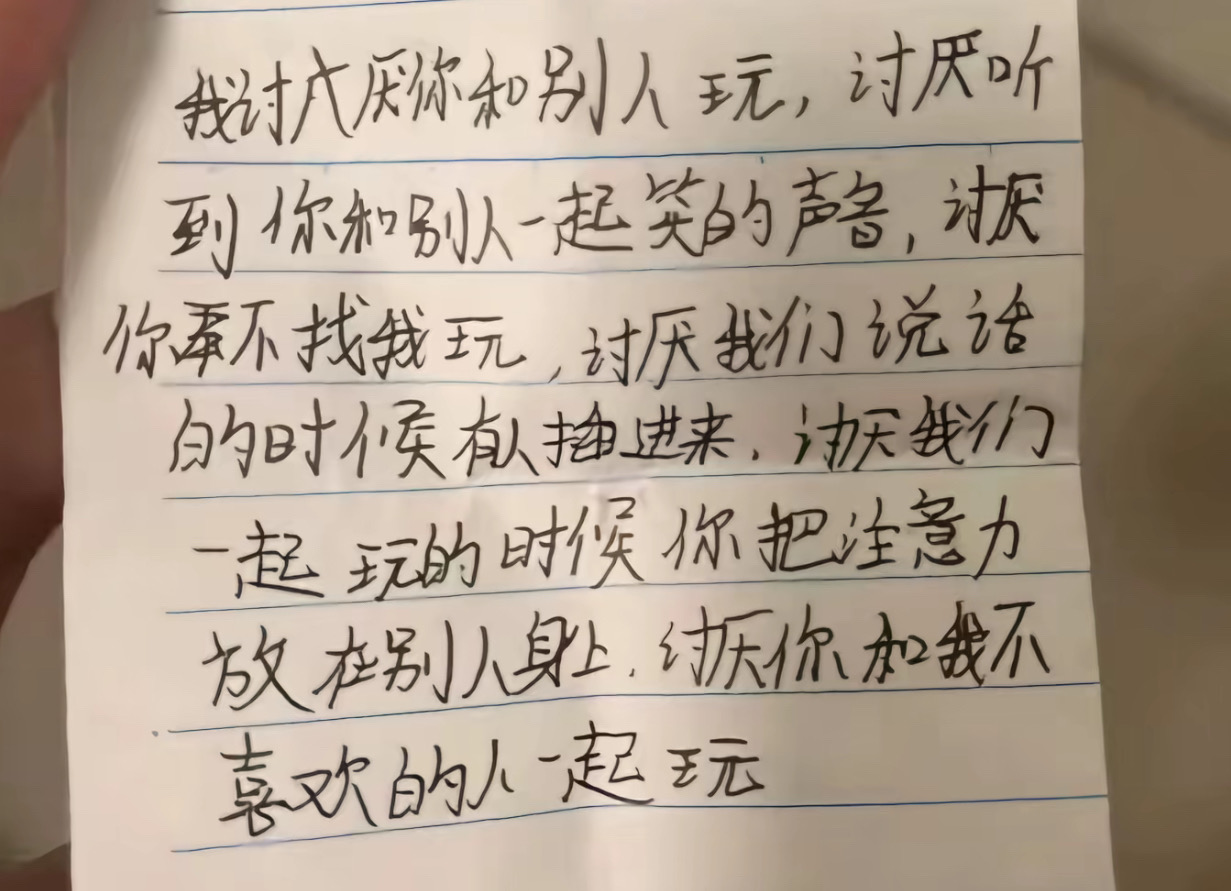 我讨厌你和别人玩，讨厌听
到你和别人一起笑的声音，讨厌
你不找我玩，讨厌我们说话
的时候有人插进来，讨厌我们
一起玩的时候你把注意力
放在别人身上，讨厌你和我不
喜欢的人一起玩